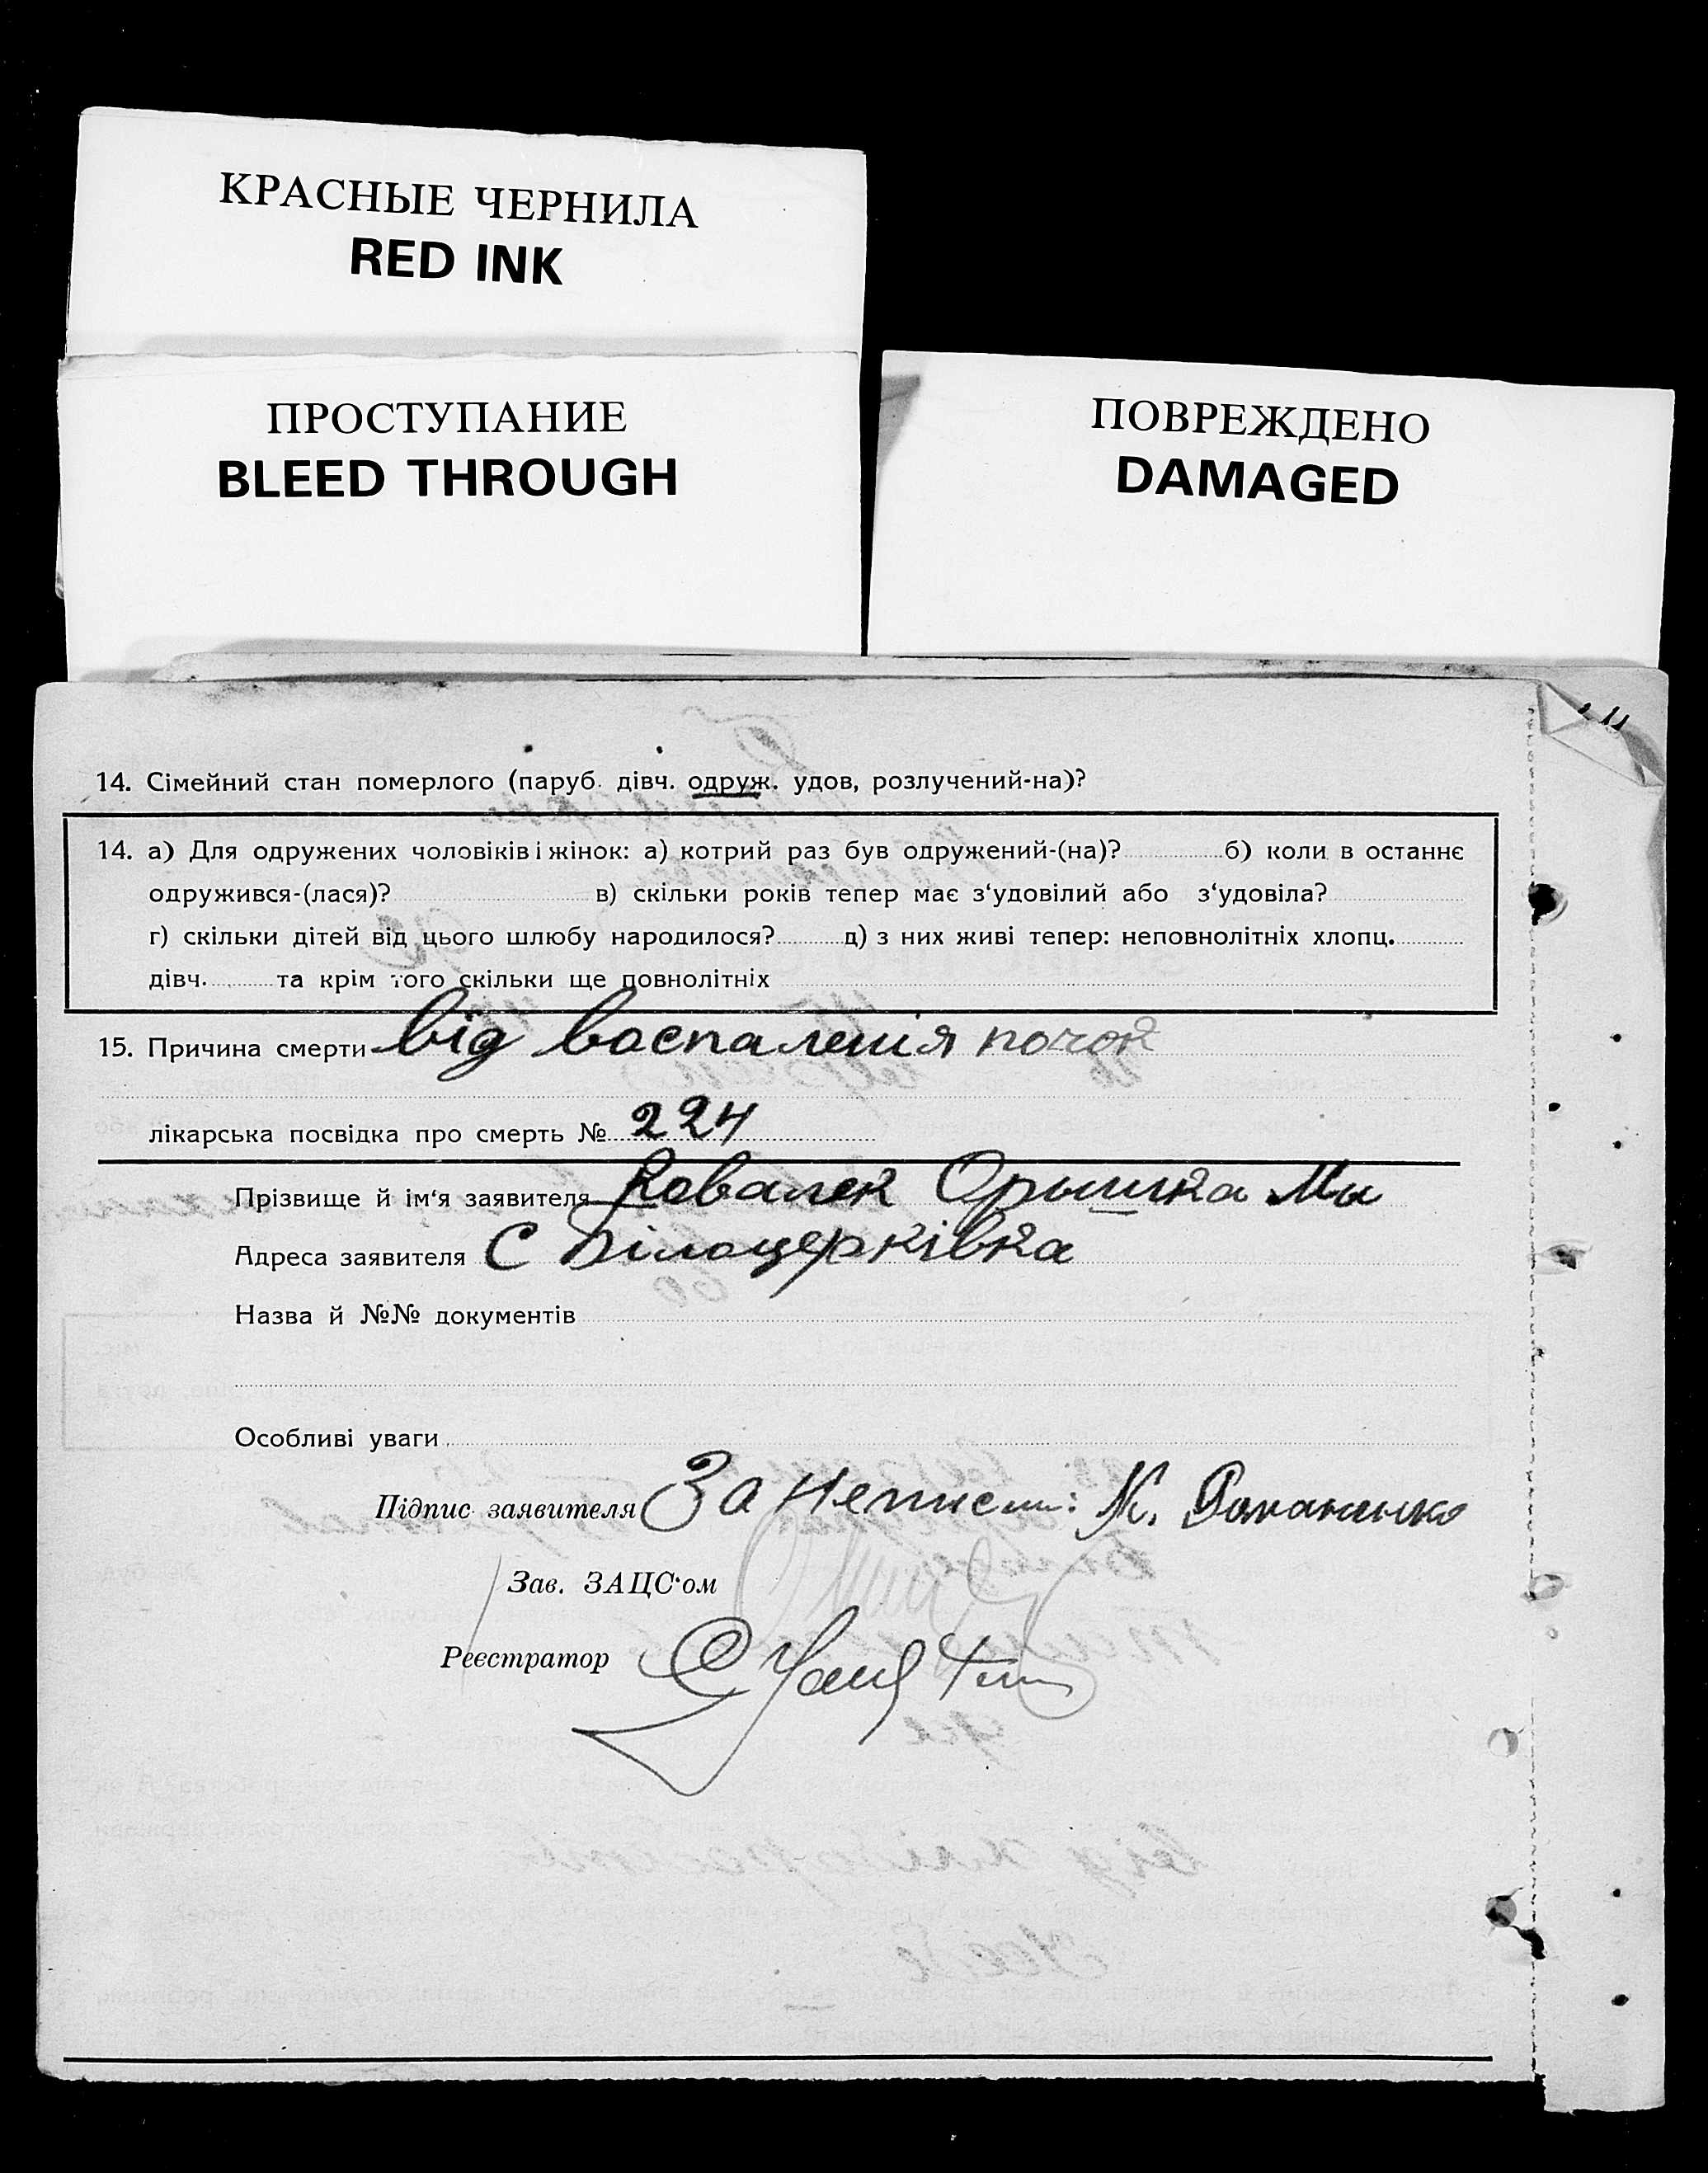 КРАСНЫЕ ЧЕРНИЛА
RED INK
ПРОСТУПАНИЕ
BLEED THROUGH
ПОВРЕЖДЕНО
DAMAGED
14. Сімейний стан померлого (паруб. дівч. одруж. удов, розлучений-на)?
14. а) Для одружених чоловіків і жінок: а) котрий раз був одружений-(на)? б) коли в останнє
одружився-(лася)? в) скільки років тепер має з‘удовілий або з‘удовіла?
г) скільки дітей від цього шлюбу народилося? д) з них живі тепер: неповнолітніх хлопц.
дівч. та крім того скільки ще повнолітніх
15. Причина смерти від воспаленія почок
лікарська посвідка про смерть № 224
Прізвище й ім‘я заявителя Ковалек Орышка Ми
Адреса заявителя С Білоцерківка
Назва й №№ документів
Особливі уваги
Підпис заявителя За неписм: М.
Зав. ЗАЦС‘ом
Реєстратор